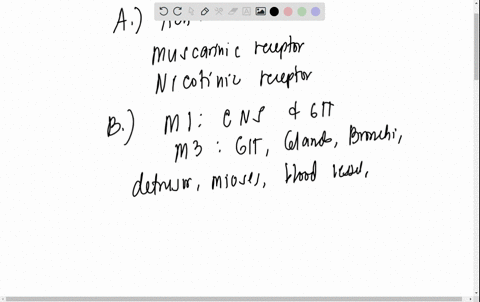 A.)
muscarinic receptor
Nicotinic receptor
B.) M1: CNS & GIT
M3: GIT, Glands, Bronchi,
detrusor, mioses, blood vessel,